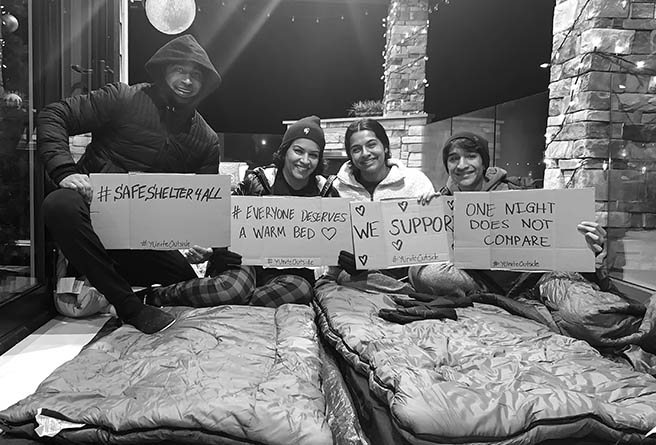 #SAFESHELTER4ALL
#YUniteOutside
# EVERYONE DESERVES
A WARM BED ♡
#YUniteOutside
WE SUPPOR
#YUniteOutside
ONE NIGHT
DOES NOT
COMPARE
#YUniteOutside